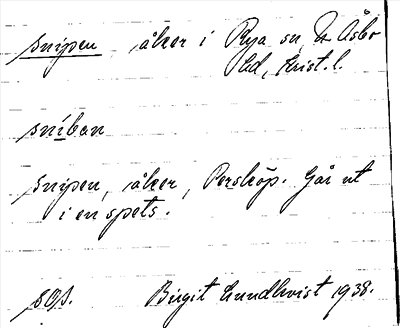 snipen, åker i Rya sn, N Åsbo
hd, Krist. l.
sníban
snipen, åker, Perstorp. Går ut
i en spets.
SOA. Birgit Lundkvist 1938.